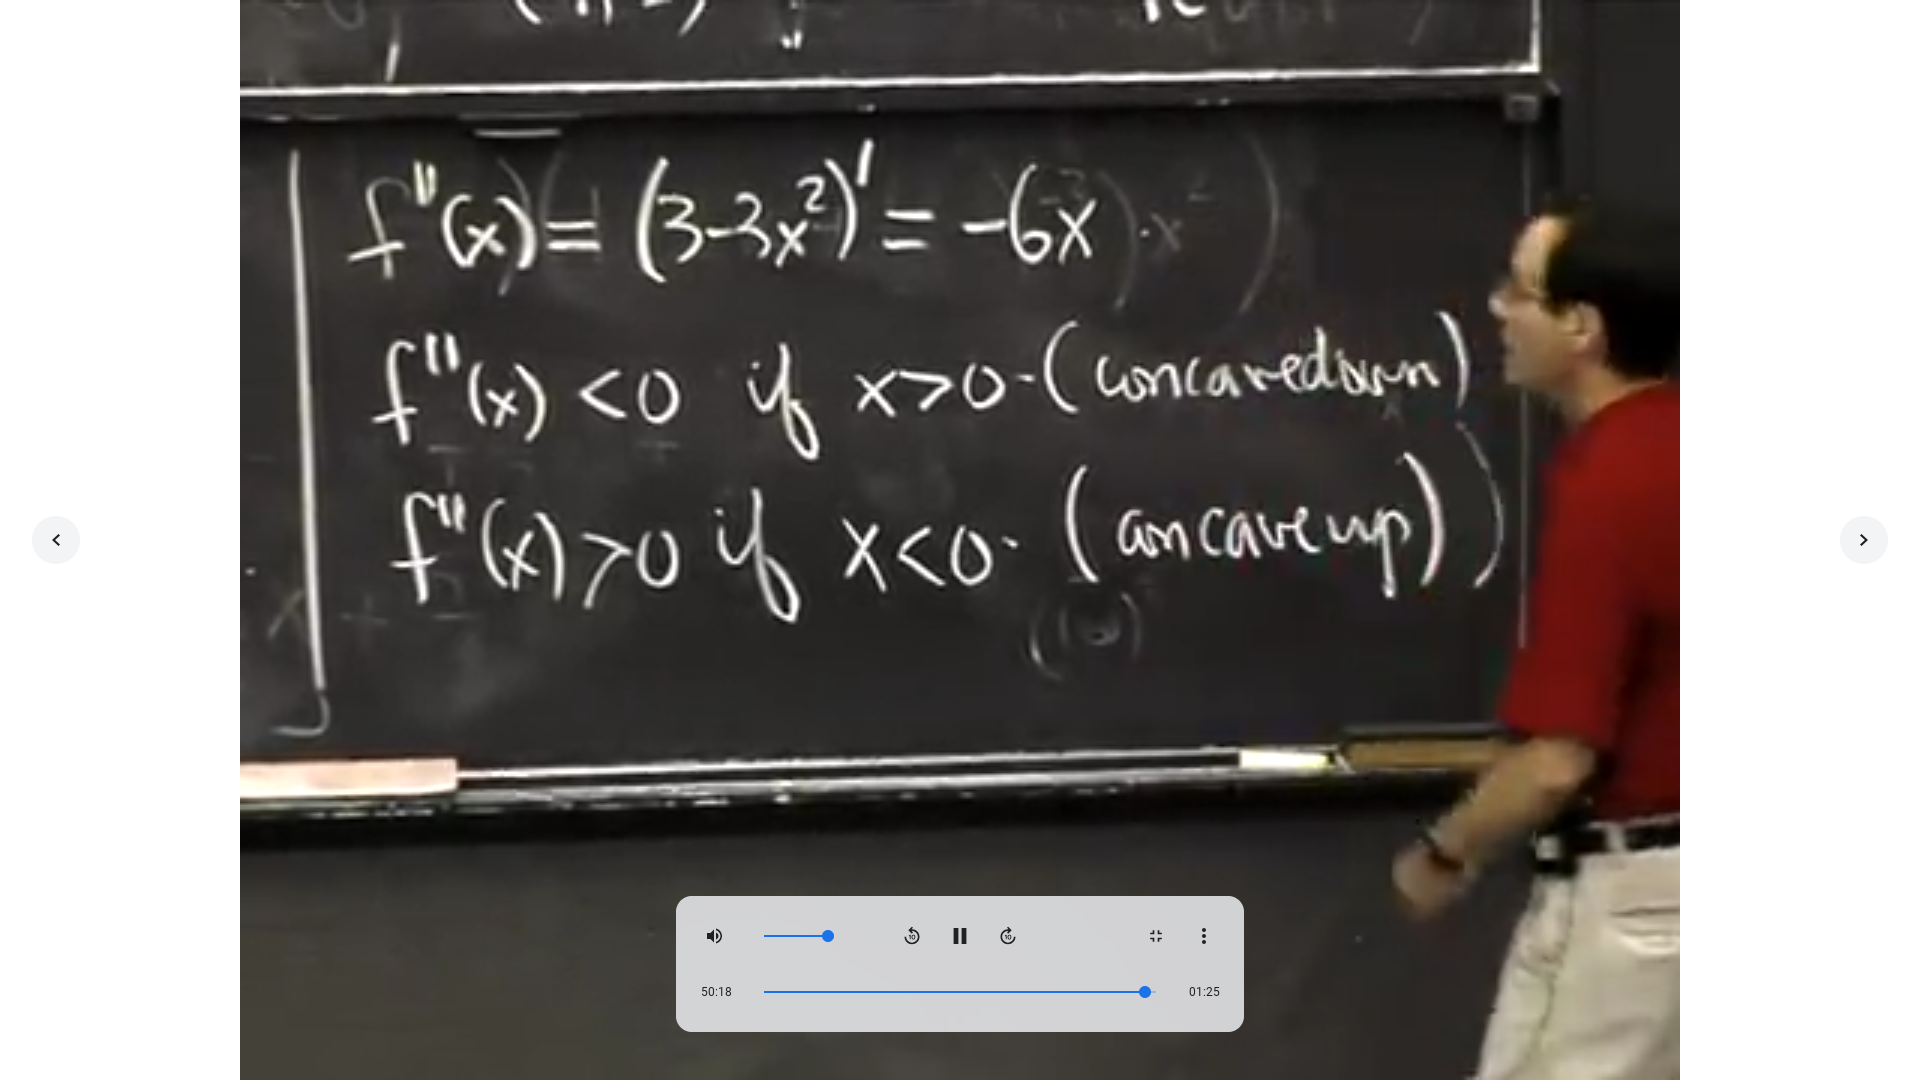 f''(x) = (3-3x²)' = -6x
f''(x) < 0 if x > 0 - (concave down)
f''(x) > 0 if x < 0 - (concave up)
50:18
01:25